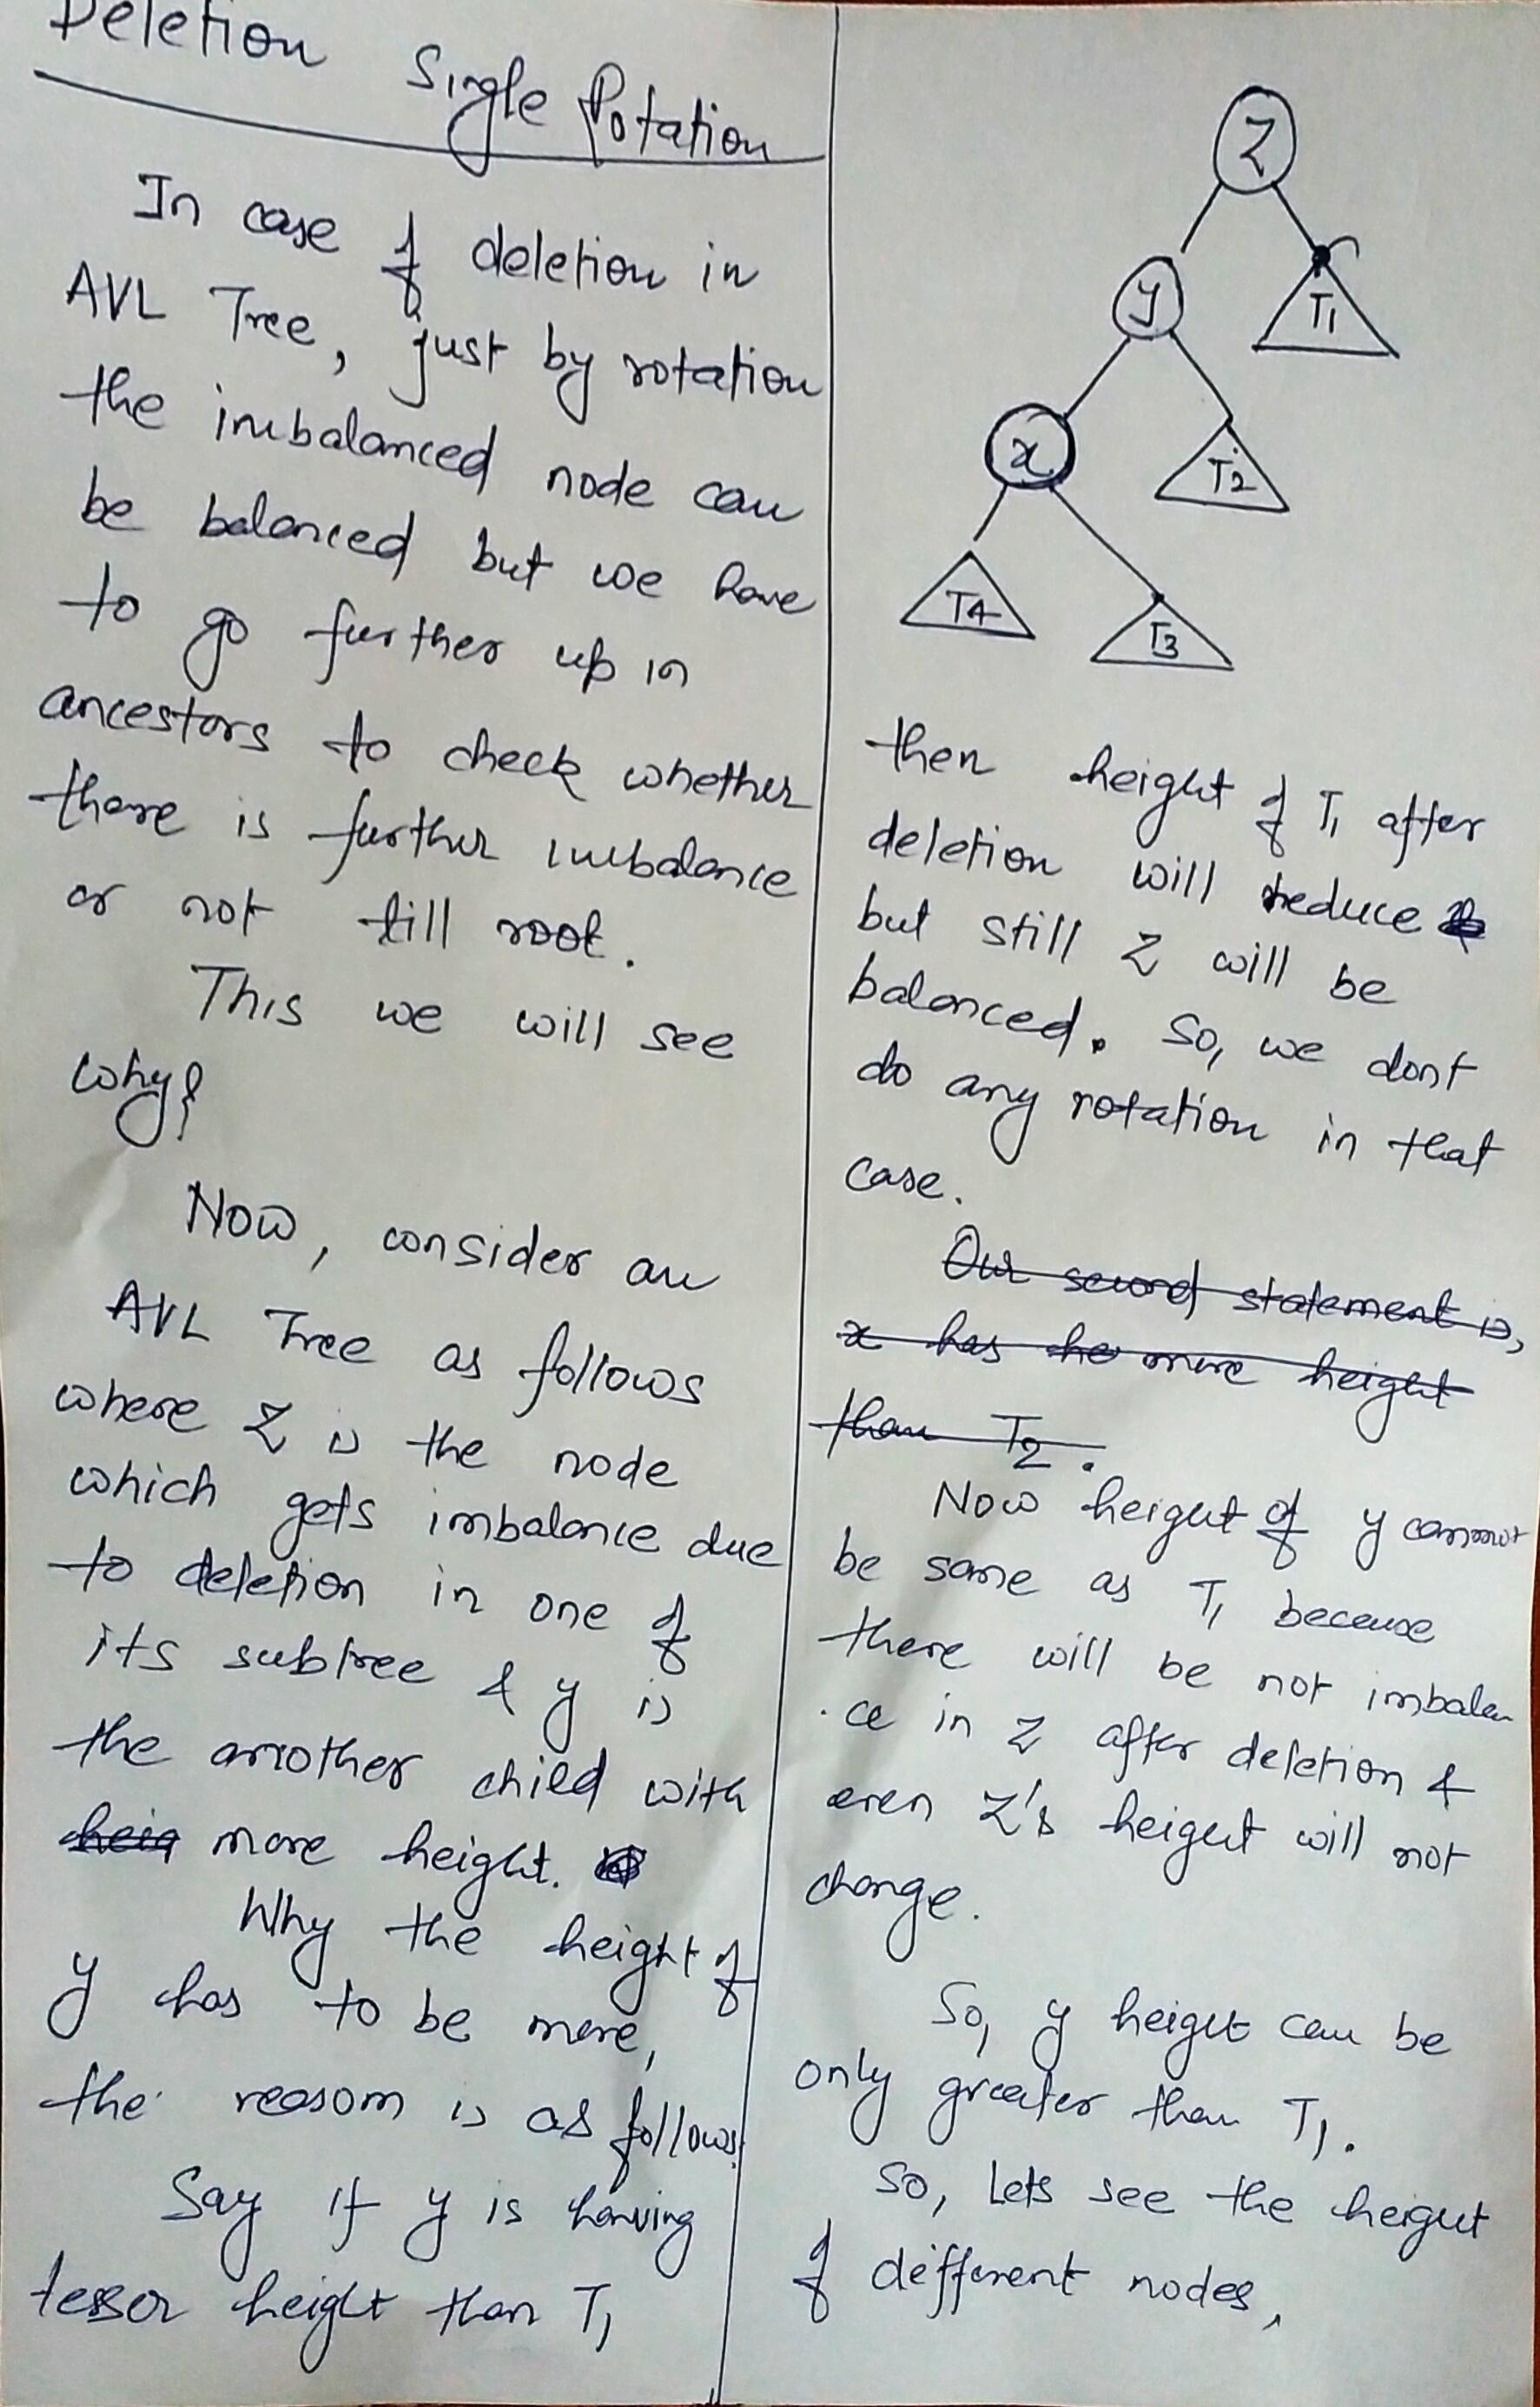 Deletion Single Rotation
In case of deletion in
AVL Tree, just by rotation
the imbalanced node can
be balanced but we have
to go further up in
ancestors to check whether
there is further imbalance
or not till root.
This we will see
why?
Now, consider an
AVL Tree as follows
where Z is the node
which gets imbalance due
to deletion in one of
its subtree & y is
the another child with
heig more height.
Why the height of
y has to be more,
the reason is as follows:
Say if y is having
lesser height than T1
Z
y
T1
x
T2
T4
T3
then height of T1 after
deletion will reduce
but still Z will be
balanced. So, we dont
do any rotation in that
case.
Our second statement is,
x has he more height
than T2.
Now height of y cannot
be same as T1 because
there will be not imbalan
ce in Z after deletion &
even Z's height will not
change.
So, y height can be
only greater than T1.
So, Lets see the height
of different nodes,